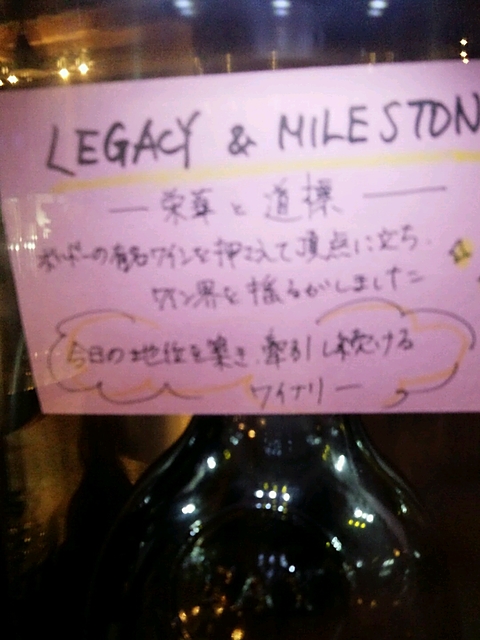 LEGACY & MILESTON
― 栄華と道標 ―
ボルドーの有名ワインを押さえて頂点に立ち、
ワイン界を揺るがしました
今日の地位を築き、牽引し続ける
ワイナリー